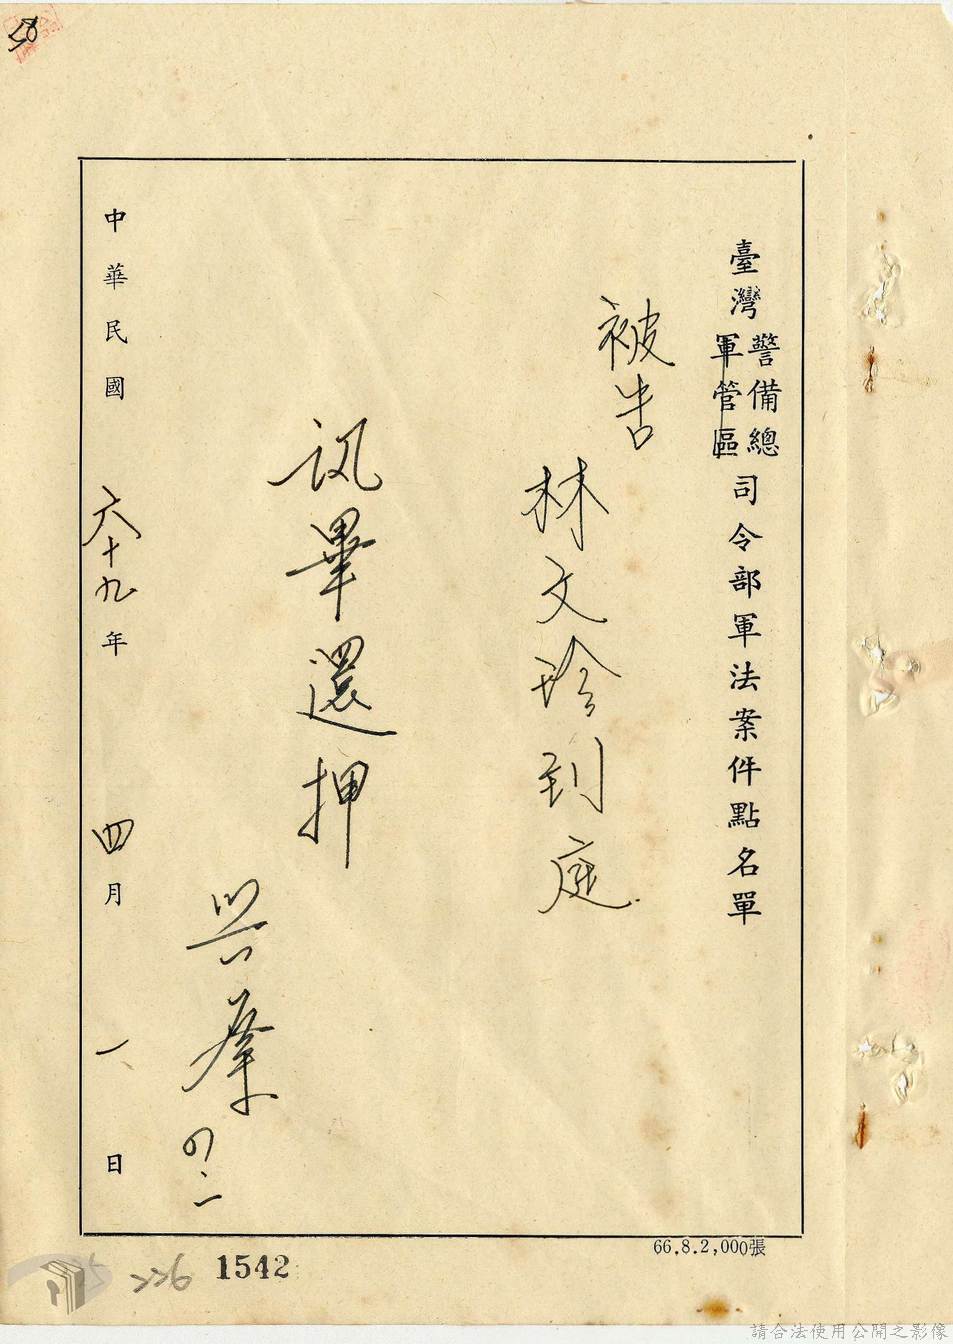 臺灣警備總軍管區司令部軍法案件點名單
被告
林文珍到庭
訊畢還押
四.一
中華民國六十九年四月一日
66.8.2,000張
226
1542
請合法使用公開之影像